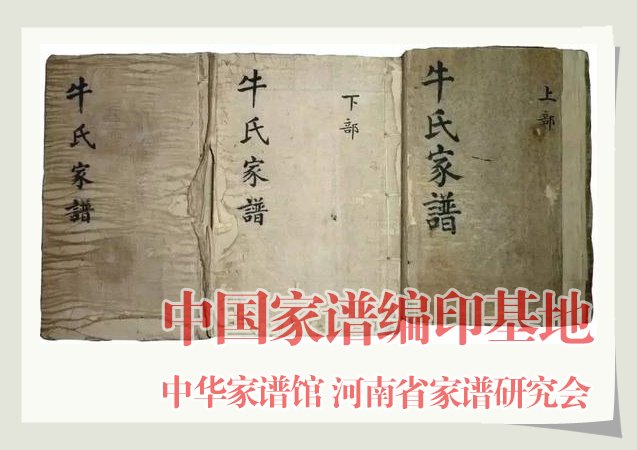 牛氏家譜
上部
牛氏家譜
下部
牛氏家譜
中国家谱编印基地
中华家谱馆 河南省家谱研究会